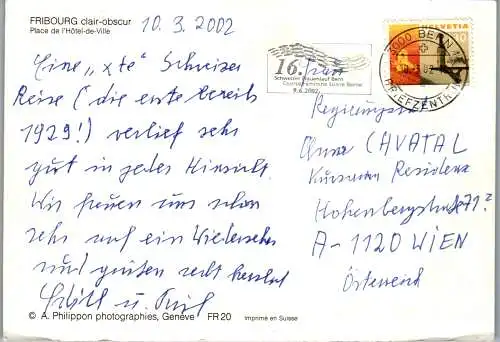 FRIBOURG clair-obscur
Place de l'Hôtel-de-Ville
10. 3. 2002
HELVETIA
3000 BERN
BRIEFZENTRUM
16.
Schweizer Frauenlauf Bern
Course féminine suisse Berne
9.6.2002
Eine „xte" Schweizer
Reise (die erste bereits
1929!) verlief sehr
gut in jeder Hinsicht.
Wir freuen uns schon
sehr auf ein Wiedersehen
und grüßen recht herzlich
u.
Frau
Anna CHVATAL
Kursana Residenz
A-1120 WIEN
Österreich
© A. Philippon photographies, Genève FR 20 Imprimé en Suisse